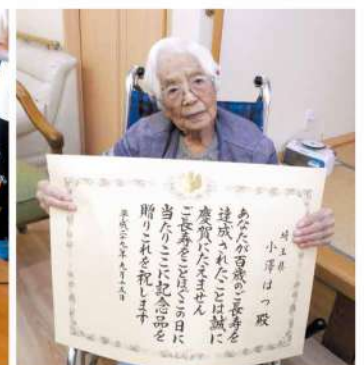 埼玉県
小澤はつ殿
あなたが百歳のご長寿を
達成されたことは誠に
慶賀にたえません
ご長寿をことほぐこの日に
当たりここに記念品を
贈りこれを祝します
平成二十九年九月十五日